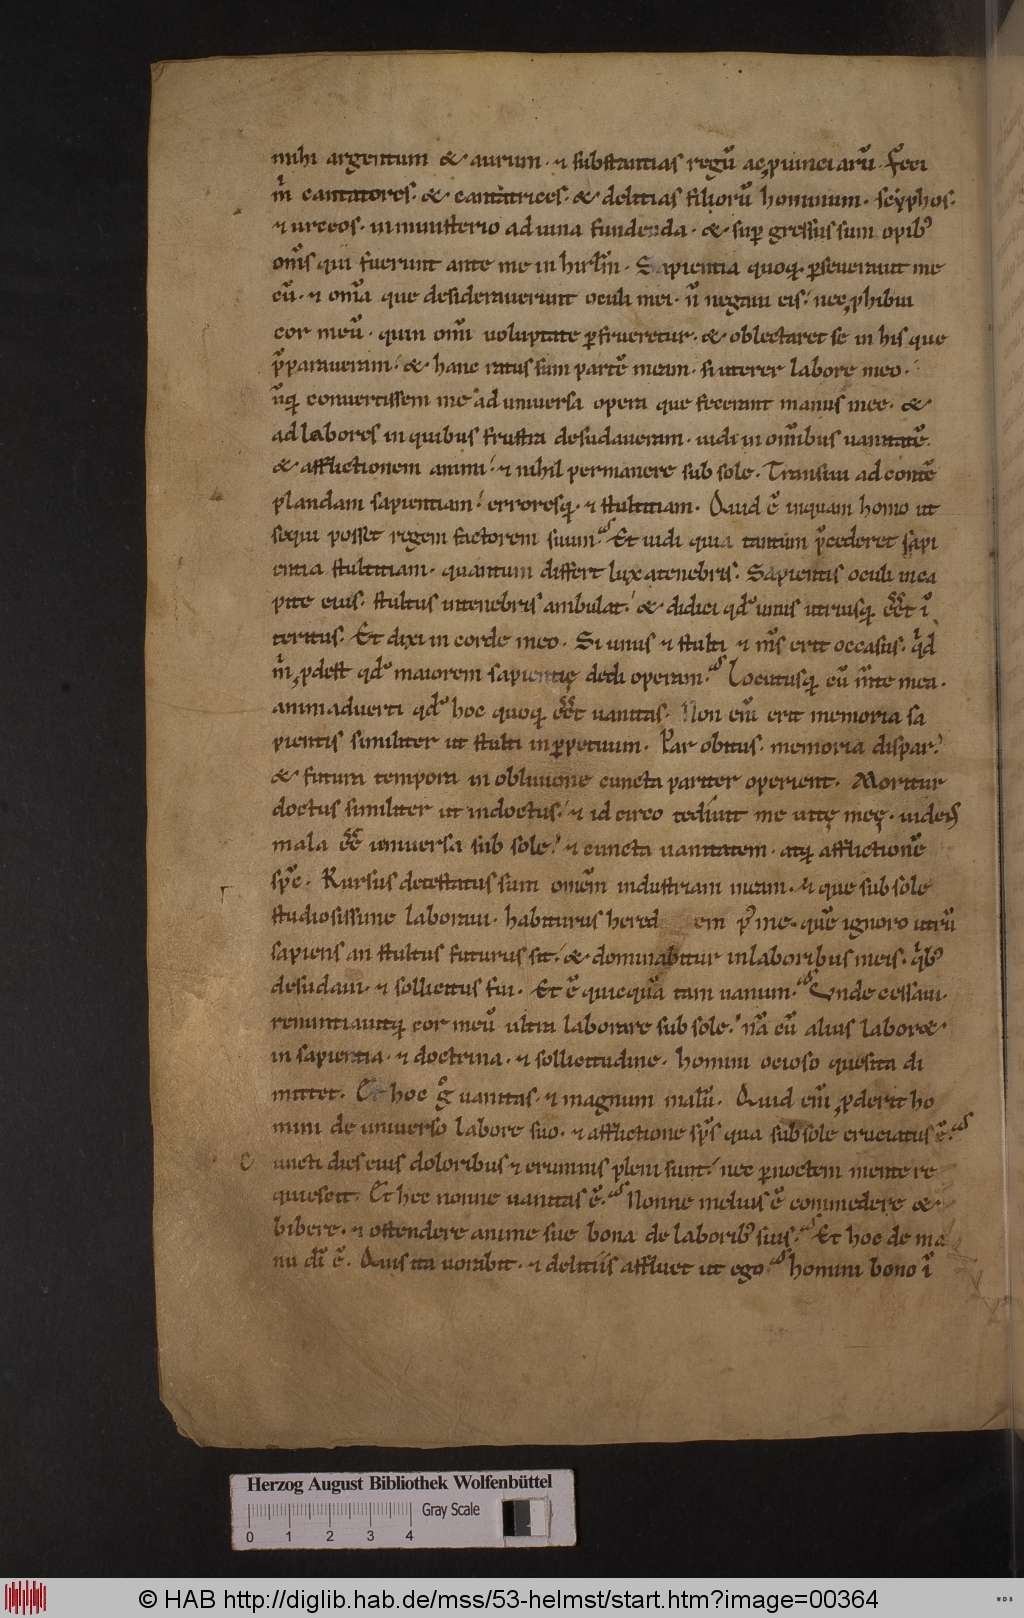 mihi argentum & aurum · ⁊ substantias regū ac ꝓuinciarū · Feci
m̍ cantatores · & cantatrices · & delitias filiorū hominum · scyphos ·
⁊ urceos · in ministerio ad uina fundenda · & suꝑ gressus sum opib᷒
om̄s qui fuerunt ante me in hirl̄m · Sapientia quoq; ꝑseuerauit me
cū · ⁊ om̄a que desiderauerunt oculi mei · n̄ negaui eis · nec ꝓhibui
cor meū · quin om̄i uoluptate ꝑfrueretur · & oblectaret se in his que
p̄paraueram · & hanc ratus sum partē meam · si uterer labore meo ·
cu̅q; conuertissem me ad uniuersa opera que fecerant manus mee · &
ad labores in quibus frustra desudaueram · uidi in om̄ibus uanitatē
& afflictionem animi · ⁊ nihil permanere sub sole · Transiui ad contē
plandam sapientiam · erroresq; ⁊ stultitiam · Quid ē inquam homo ut
sequi posset regem factorem suum · Et uidi quia tantum p̄cederet sapi
entia stultitiam · quantum differt lux a tenebris · Sapientis oculi in ca
pite eius · stultus in tenebris ambulat · & didici qd̄ unus utriusq; eēt ī
teritus · Et dixi in corde meo · Si unus ⁊ stulti ⁊ m̄s erit occasus · qͥd
m̍ ꝓdest qd̄ maiorem sapientię dedi operam · Locutusq; cū m̄te mea ·
animaduerti qd̄ hoc quoq; eēt uanitas · Non eni̅ erit memoria sa
pientis similiter ut stulti in ꝑpetuum · Par obitus · memoria dispar ·
& futura tempora in obliuione cuncta pariter operient · Moritur
doctus similiter ut indoctus · ⁊ id circo tediuit me uitę meę · uidens
mala eē uniuersa sub sole · ⁊ cuncta uanitatem · atq; afflictionē
sp̄c · Rursus detestatus sum omēm industriam meam · ⁊ que sub sole
studiosissime laboraui · habiturus hered em p᷒ me · quē ignoro utrū
sapiens an stultus futurus sit · & dominabitur in laboribus meis · qͥb᷒
desudaui · ⁊ sollicitus fui · Et ē quicquā tam uanum · Unde cessaui ·
renuntiauitq; cor meū ultra laborare sub sole · nā cū alius labor&
in sapientia · ⁊ doctrina · ⁊ sollicitudine · homini ocioso quesita di
mittet · Et hoc gͦ uanitas · ⁊ magnum malū · Quid eni̅ ꝓderit ho
mini de uniuerso labore suo · ⁊ afflictione sp̄s qua sub sole cruciatus ē ·
C uncti dies eius doloribus ⁊ erumnis pleni sunt · nec ꝑ noctem mente re
quiescit · Et hec nonne uanitas ē · Nonne melius ē commedere &
bibere · ⁊ ostendere anime sue bona de laborib᷒ suis · Et hoc de ma
nu dī ē · Quis ita uorabit · ⁊ delitiis affluet ut ego · homini bono ī
Herzog August Bibliothek Wolfenbüttel
Gray Scale
0 1 2 3 4
© HAB http://diglib.hab.de/mss/53-helmst/start.htm?image=00364